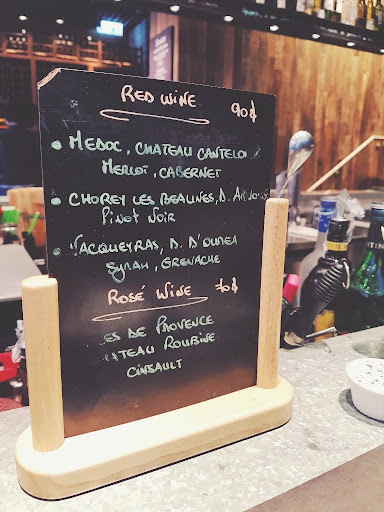 RED WINE 90$
• MEDOC, CHATEAU CANTELOU
MERLOT, CABERNET
• CHOREY LES BEAUNES, D.
PINOT NOIR
VACQUEYRAS, D. D'OUREA
SYRAH, GRENACHE
ROSÉ WINE 70$
ES DE PROVENCE
TEAU ROUBINE
CINSAULT